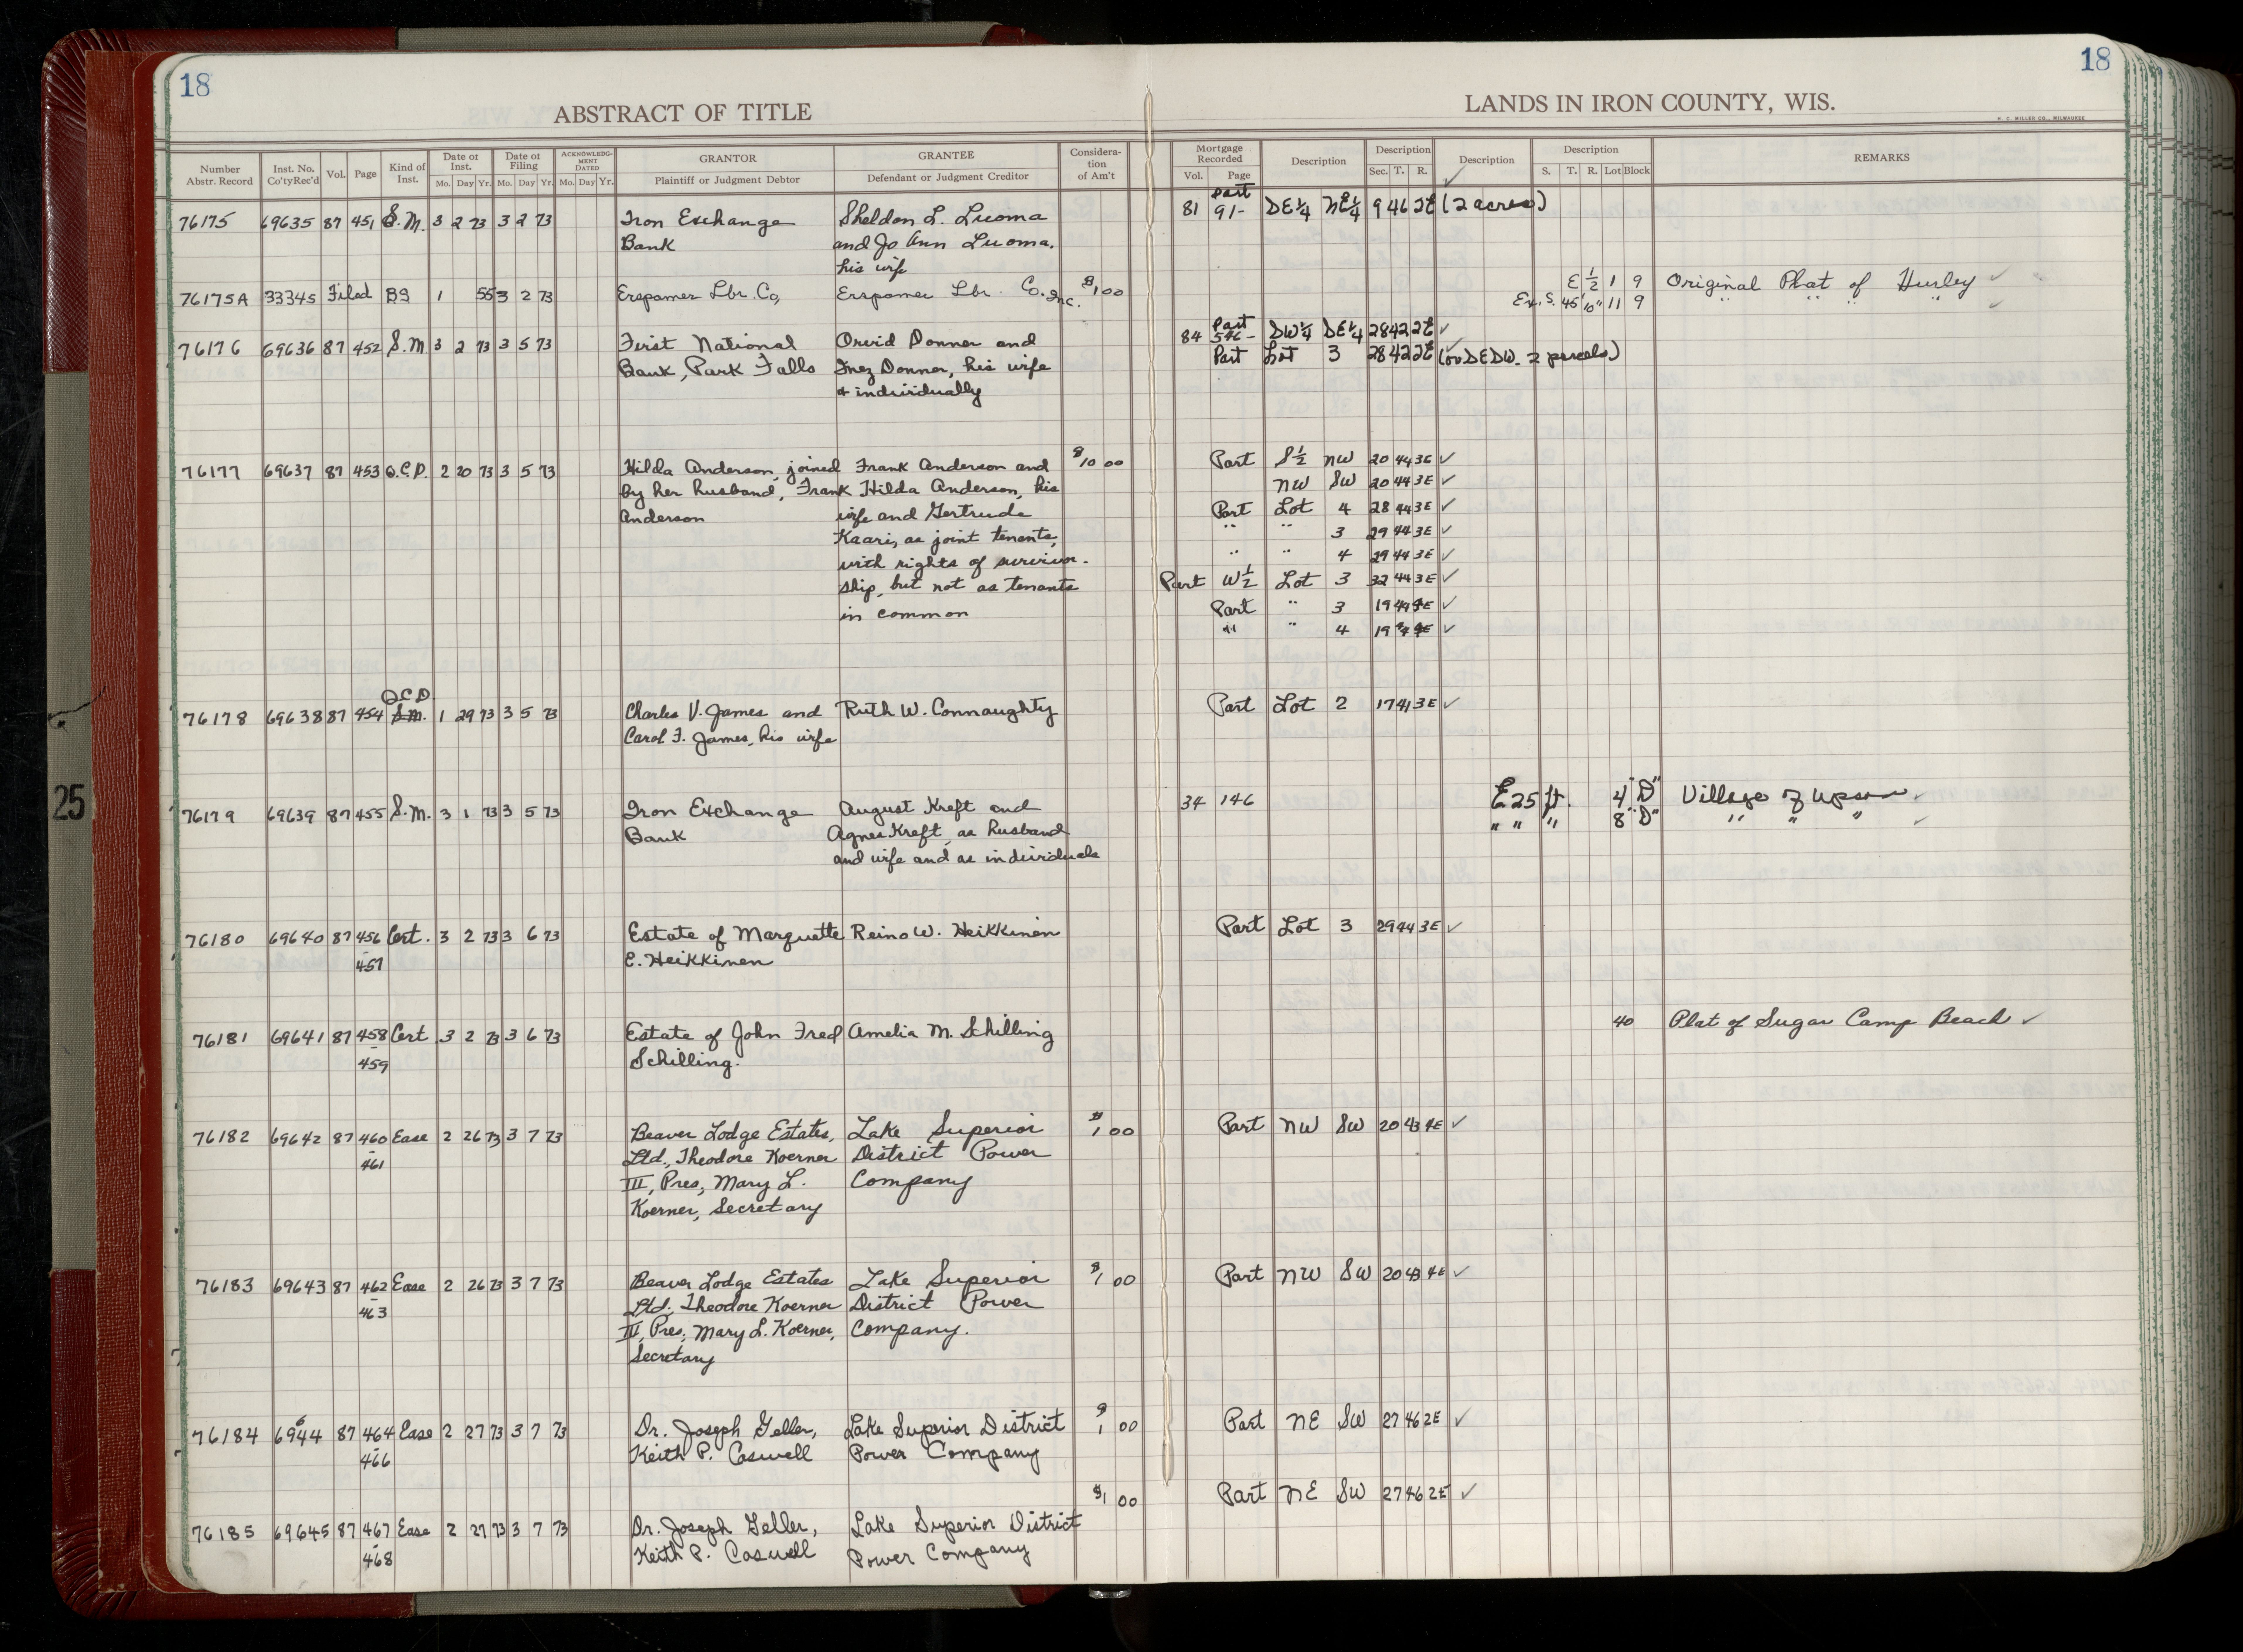 18
18
ABSTRACT OF TITLE
LANDS IN IRON COUNTY, WIS.
H. C. MILLER CO., MILWAUKEE
Number Abstr. Record | Inst. No. Co'tyRec'd | Vol. | Page | Kind of Inst. | Date of Inst. Mo. Day Yr. | Date of Filing Mo. Day Yr. | ACKNOWLEDGMENT DATED Mo. Day Yr. | GRANTOR Plaintiff or Judgment Debtor | GRANTEE Defendant or Judgment Creditor | Consideration of Am't | Mortgage Recorded Vol. Page | Description | Description Sec. T. R. | Description | Description S. T. R. Lot Block | REMARKS
76175 69635 87 451 S.M. 3 2 73 3 2 73 Iron Exchange Sheldon L. Luoma 81 Part 91- SE1/4 NE1/4 9 46 2E (2 acres)
Bank and Jo Ann Luoma,
his wife
76175A 33345 Filed BS 1 55 3 2 73 Erspamer Lbr. Co, Erspamer Lbr. Co. Inc. $1 00 E 1/2 1 9 Original Plat of Hurley ✓
Ex. S. 45' 10" 11 9 " " " " ✓
76176 69636 87 452 S.M 3 2 73 3 5 73 First National Orvid Donner and 84 Part 546- SW1/4 SE1/4 28 42 2E ✓
Bank, Park Falls Inez Donner, his wife Part Lot 3 28 42 2E (or SESW. 2 parcels)
& individually
76177 69637 87 453 Q.C.D. 2 20 73 3 5 73 Hilda Anderson, joined Frank Anderson and $10 00 Part S 1/2 NW 20 44 3E ✓
by her husband, Frank Hilda Anderson, his NW SW 20 44 3E ✓
Anderson wife and Gertrude Part Lot 4 28 44 3E ✓
Kaari, as joint tenants, " " 3 29 44 3E ✓
with rights of survivor- " " 4 29 44 3E ✓
ship, but not as tenants Part W 1/2 Lot 3 32 44 3E ✓
in common Part " 3 19 44 4E ✓
" " 4 19 44 4E ✓
Q.C.D.
76178 69638 87 454 S.M. 1 29 73 3 5 73 Charles V. James and Ruth W. Connaughty Part Lot 2 17 41 3E ✓
Carol F. James, his wife
76179 69639 87 455 S.M. 3 1 73 3 5 73 Iron Exchange August Kreft and 34 146 E 25 ft. 4 "D" Village of Upson ✓
Bank Agnes Kreft, as husband " " " 8 "D" " " " ✓
and wife and as individuals
25
76180 69640 87 456 Cert. 3 2 73 3 6 73 Estate of Marquette Reino W. Heikkinen Part Lot 3 29 44 3E ✓
- 457 E. Heikkinen
76181 69641 87 458 Cert 3 2 73 3 6 73 Estate of John Fred Amelia M. Schilling 40 Plat of Sugar Camp Beach ✓
- 459 Schilling.
76182 69642 87 460 Ease 2 26 73 3 7 73 Beaver Lodge Estates, Lake Superior $1 00 Part NW SW 20 43 4E ✓
- 461 Ltd., Theodore Koerner District Power
III, Pres, Mary L. Company
Koerner, Secretary
76183 69643 87 462 Ease 2 26 73 3 7 73 Beaver Lodge Estates Lake Superior $1 00 Part NW SW 20 43 4E ✓
- 463 Ltd., Theodore Koerner District Power
III, Pres, Mary L. Koerner, Company.
Secretary
76184 69644 87 464 Ease 2 27 73 3 7 73 Dr. Joseph Geller, Lake Superior District $1 00 Part NE SW 27 46 2E ✓
- 466 Keith P. Caswell Power Company
$1 00 Part NE SW 27 46 2E ✓
76185 69645 87 467 Ease 2 27 73 3 7 73 Dr. Joseph Geller, Lake Superior District
- 468 Keith P. Caswell Power Company